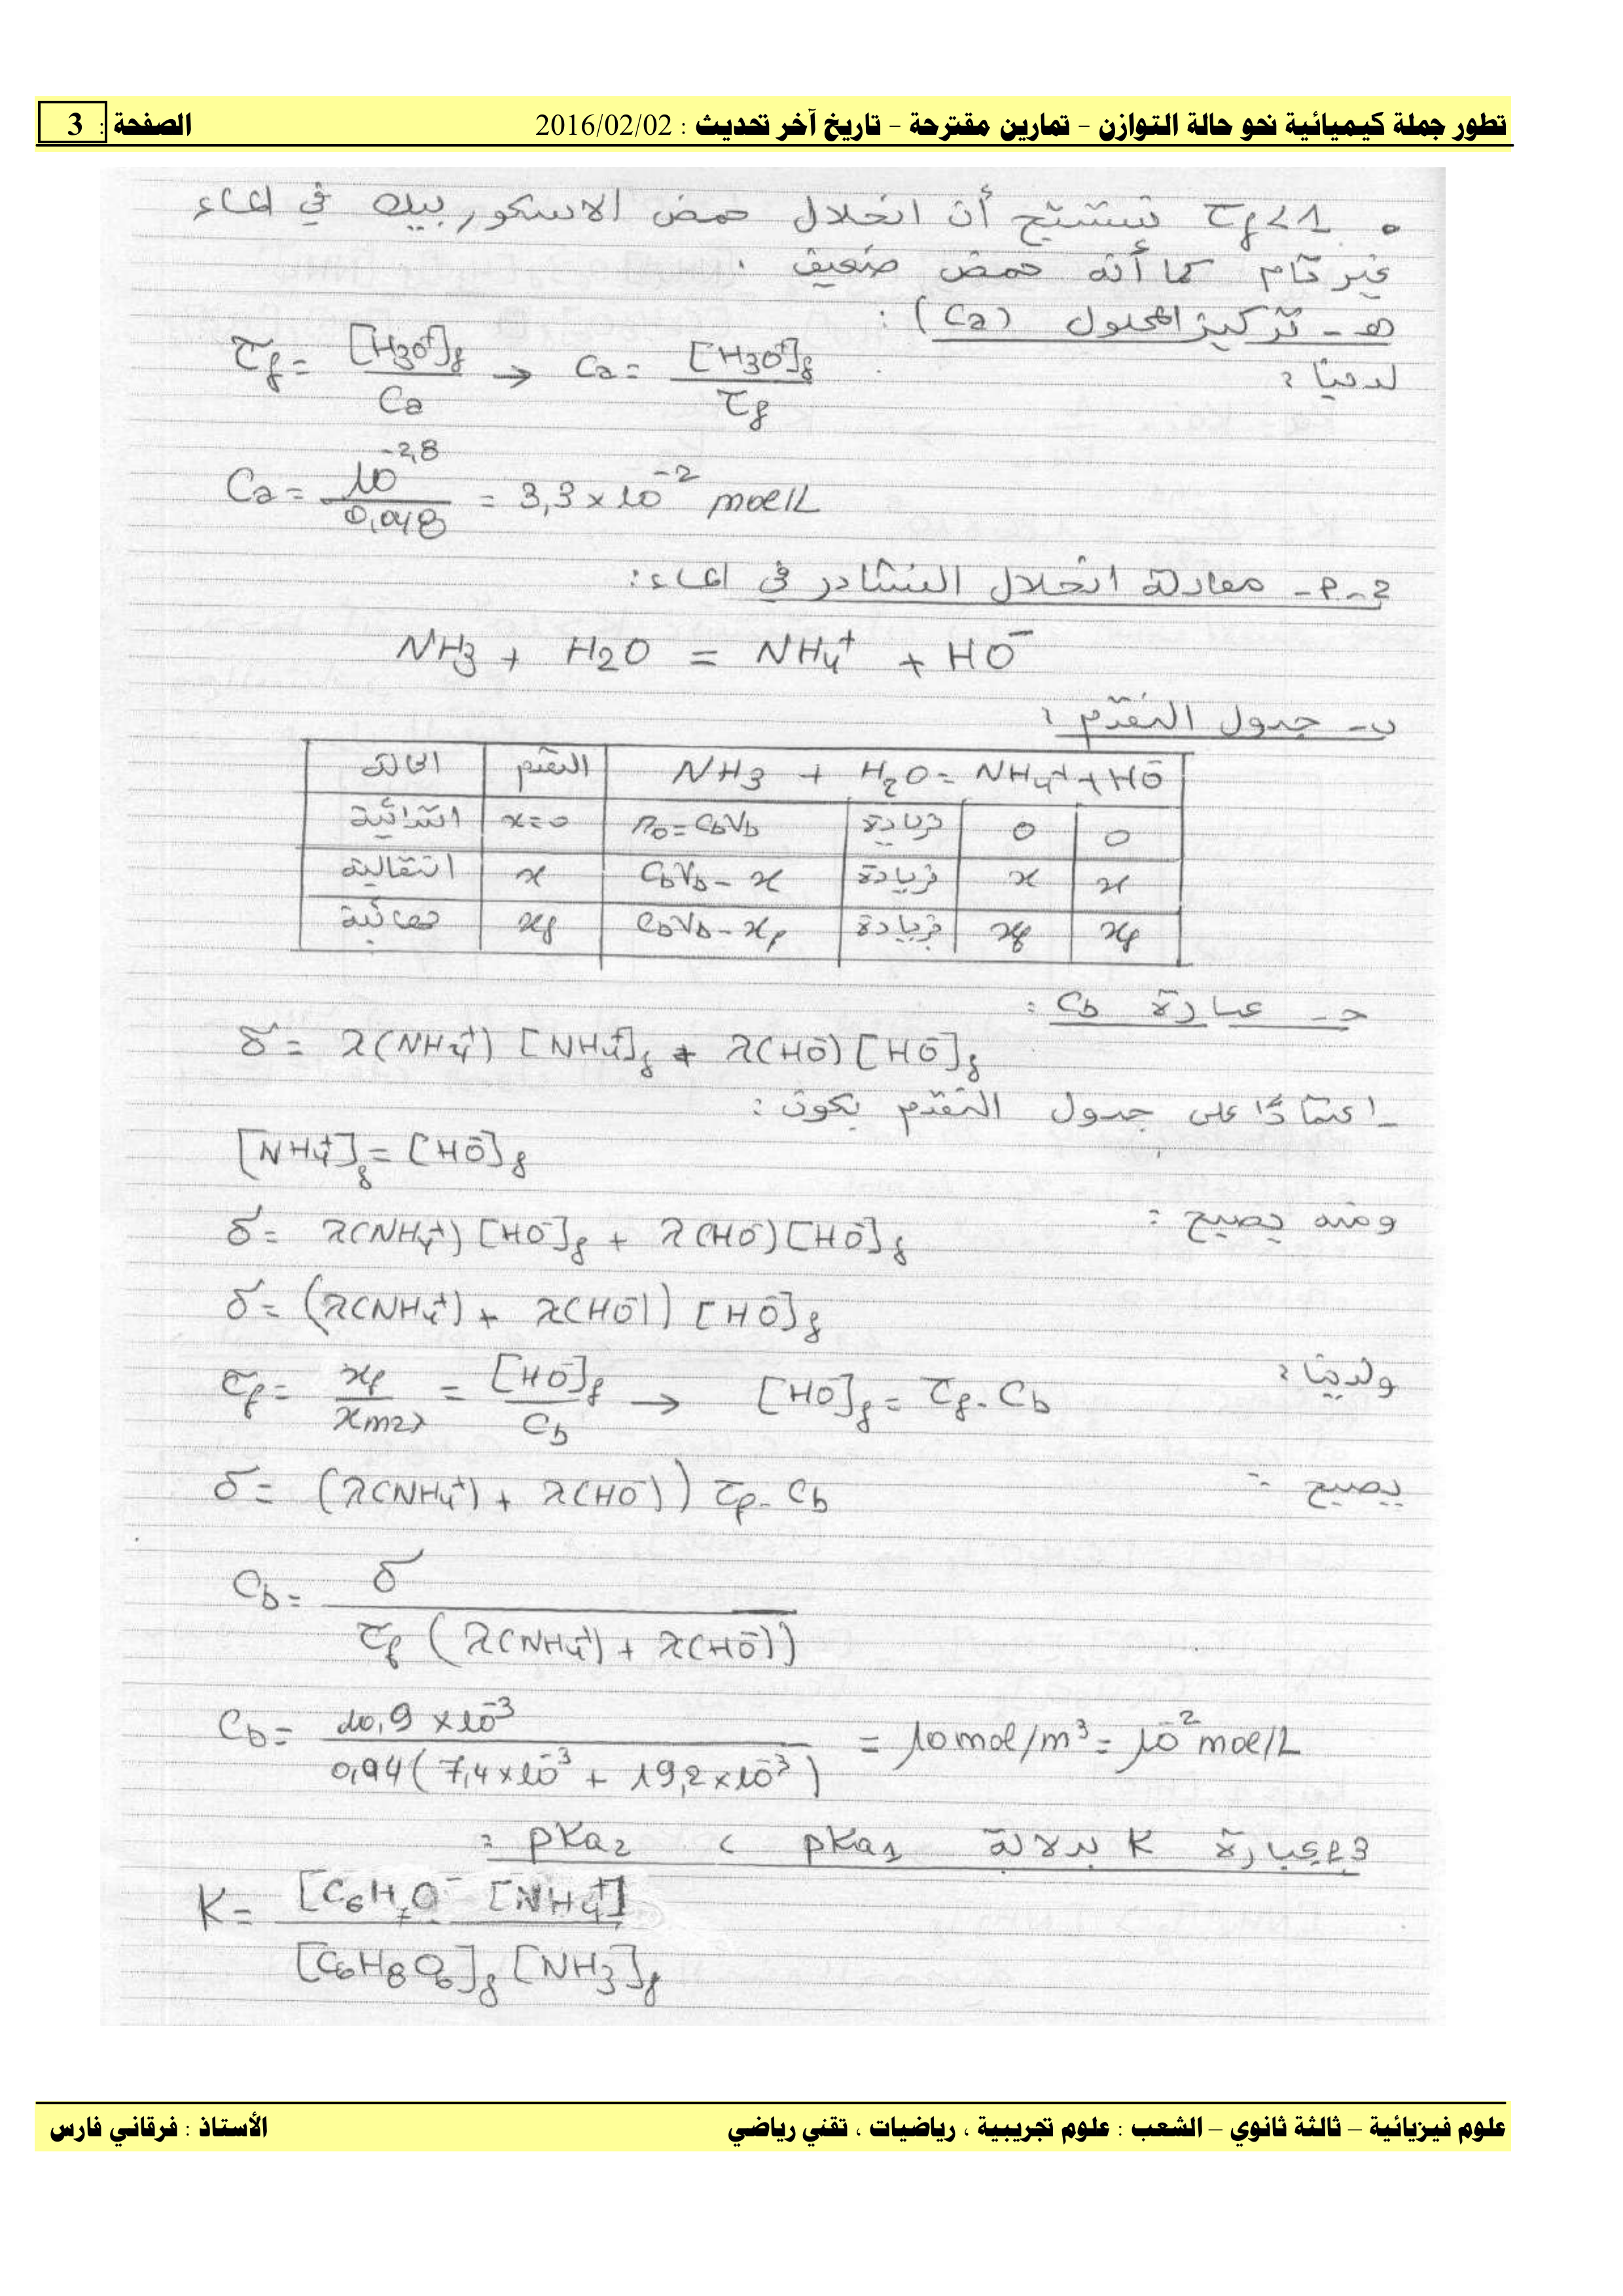 تطور جملة كيميائية نحو حالة التوازن – تمارين مقترحة – تاريخ آخر تحديث : 2016/02/02 الصفحة : 3
• τf < 1 نستنتج أن انحلال حمض الاسكوربيك في الماء
غير تام كما أنه حمض ضعيف .
هـ - تركيز المحلول (Ca) :
لدينا :
τf = [H3O+]f / Ca → Ca = [H3O+]f / τf
Ca = 10^-2,8 / 0,048 = 3,3 × 10^-2 mol/L
2-أ- معادلة انحلال النشادر في الماء :
NH3 + H2O = NH4+ + HO-
ب- جدول التقدم :
الحالة | التقدم | NH3 + H2O = NH4+ + HO-
ابتدائية | x=0 | n0 = CbVb | زيادة | 0 | 0
انتقالية | x | CbVb - x | زيادة | x | x
نهائية | xf | CbVb - xf | زيادة | xf | xf
ج- عبارة Cb :
δ = λ(NH4+) [NH4+]f + λ(HO-) [HO-]f
- اعتمادًا على جدول التقدم يكون :
[NH4+]f = [HO-]f
ومنه يصبح :
δ = λ(NH4+) [HO-]f + λ(HO-) [HO-]f
δ = (λ(NH4+) + λ(HO-)) [HO-]f
ولدينا :
τf = xf / xmax = [HO-]f / Cb → [HO-]f = τf . Cb
يصبح :
δ = (λ(NH4+) + λ(HO-)) τf . Cb
Cb = δ / τf (λ(NH4+) + λ(HO-))
Cb = 10,9 × 10^-3 / 0,04 (7,4 × 10^-3 + 19,2 × 10^-3) = 10 mol/m^3 = 10^-2 mol/L
3-أ- عبارة K بدلالة pKa1 ، pKa2 :
K = [C6H7O- [NH4+] / [C6H8O6]f [NH3]f
علوم فيزيائية – ثالثة ثانوي – الشعب : علوم تجريبية ، رياضيات ، تقني رياضي الأستاذ : فرقاني فارس